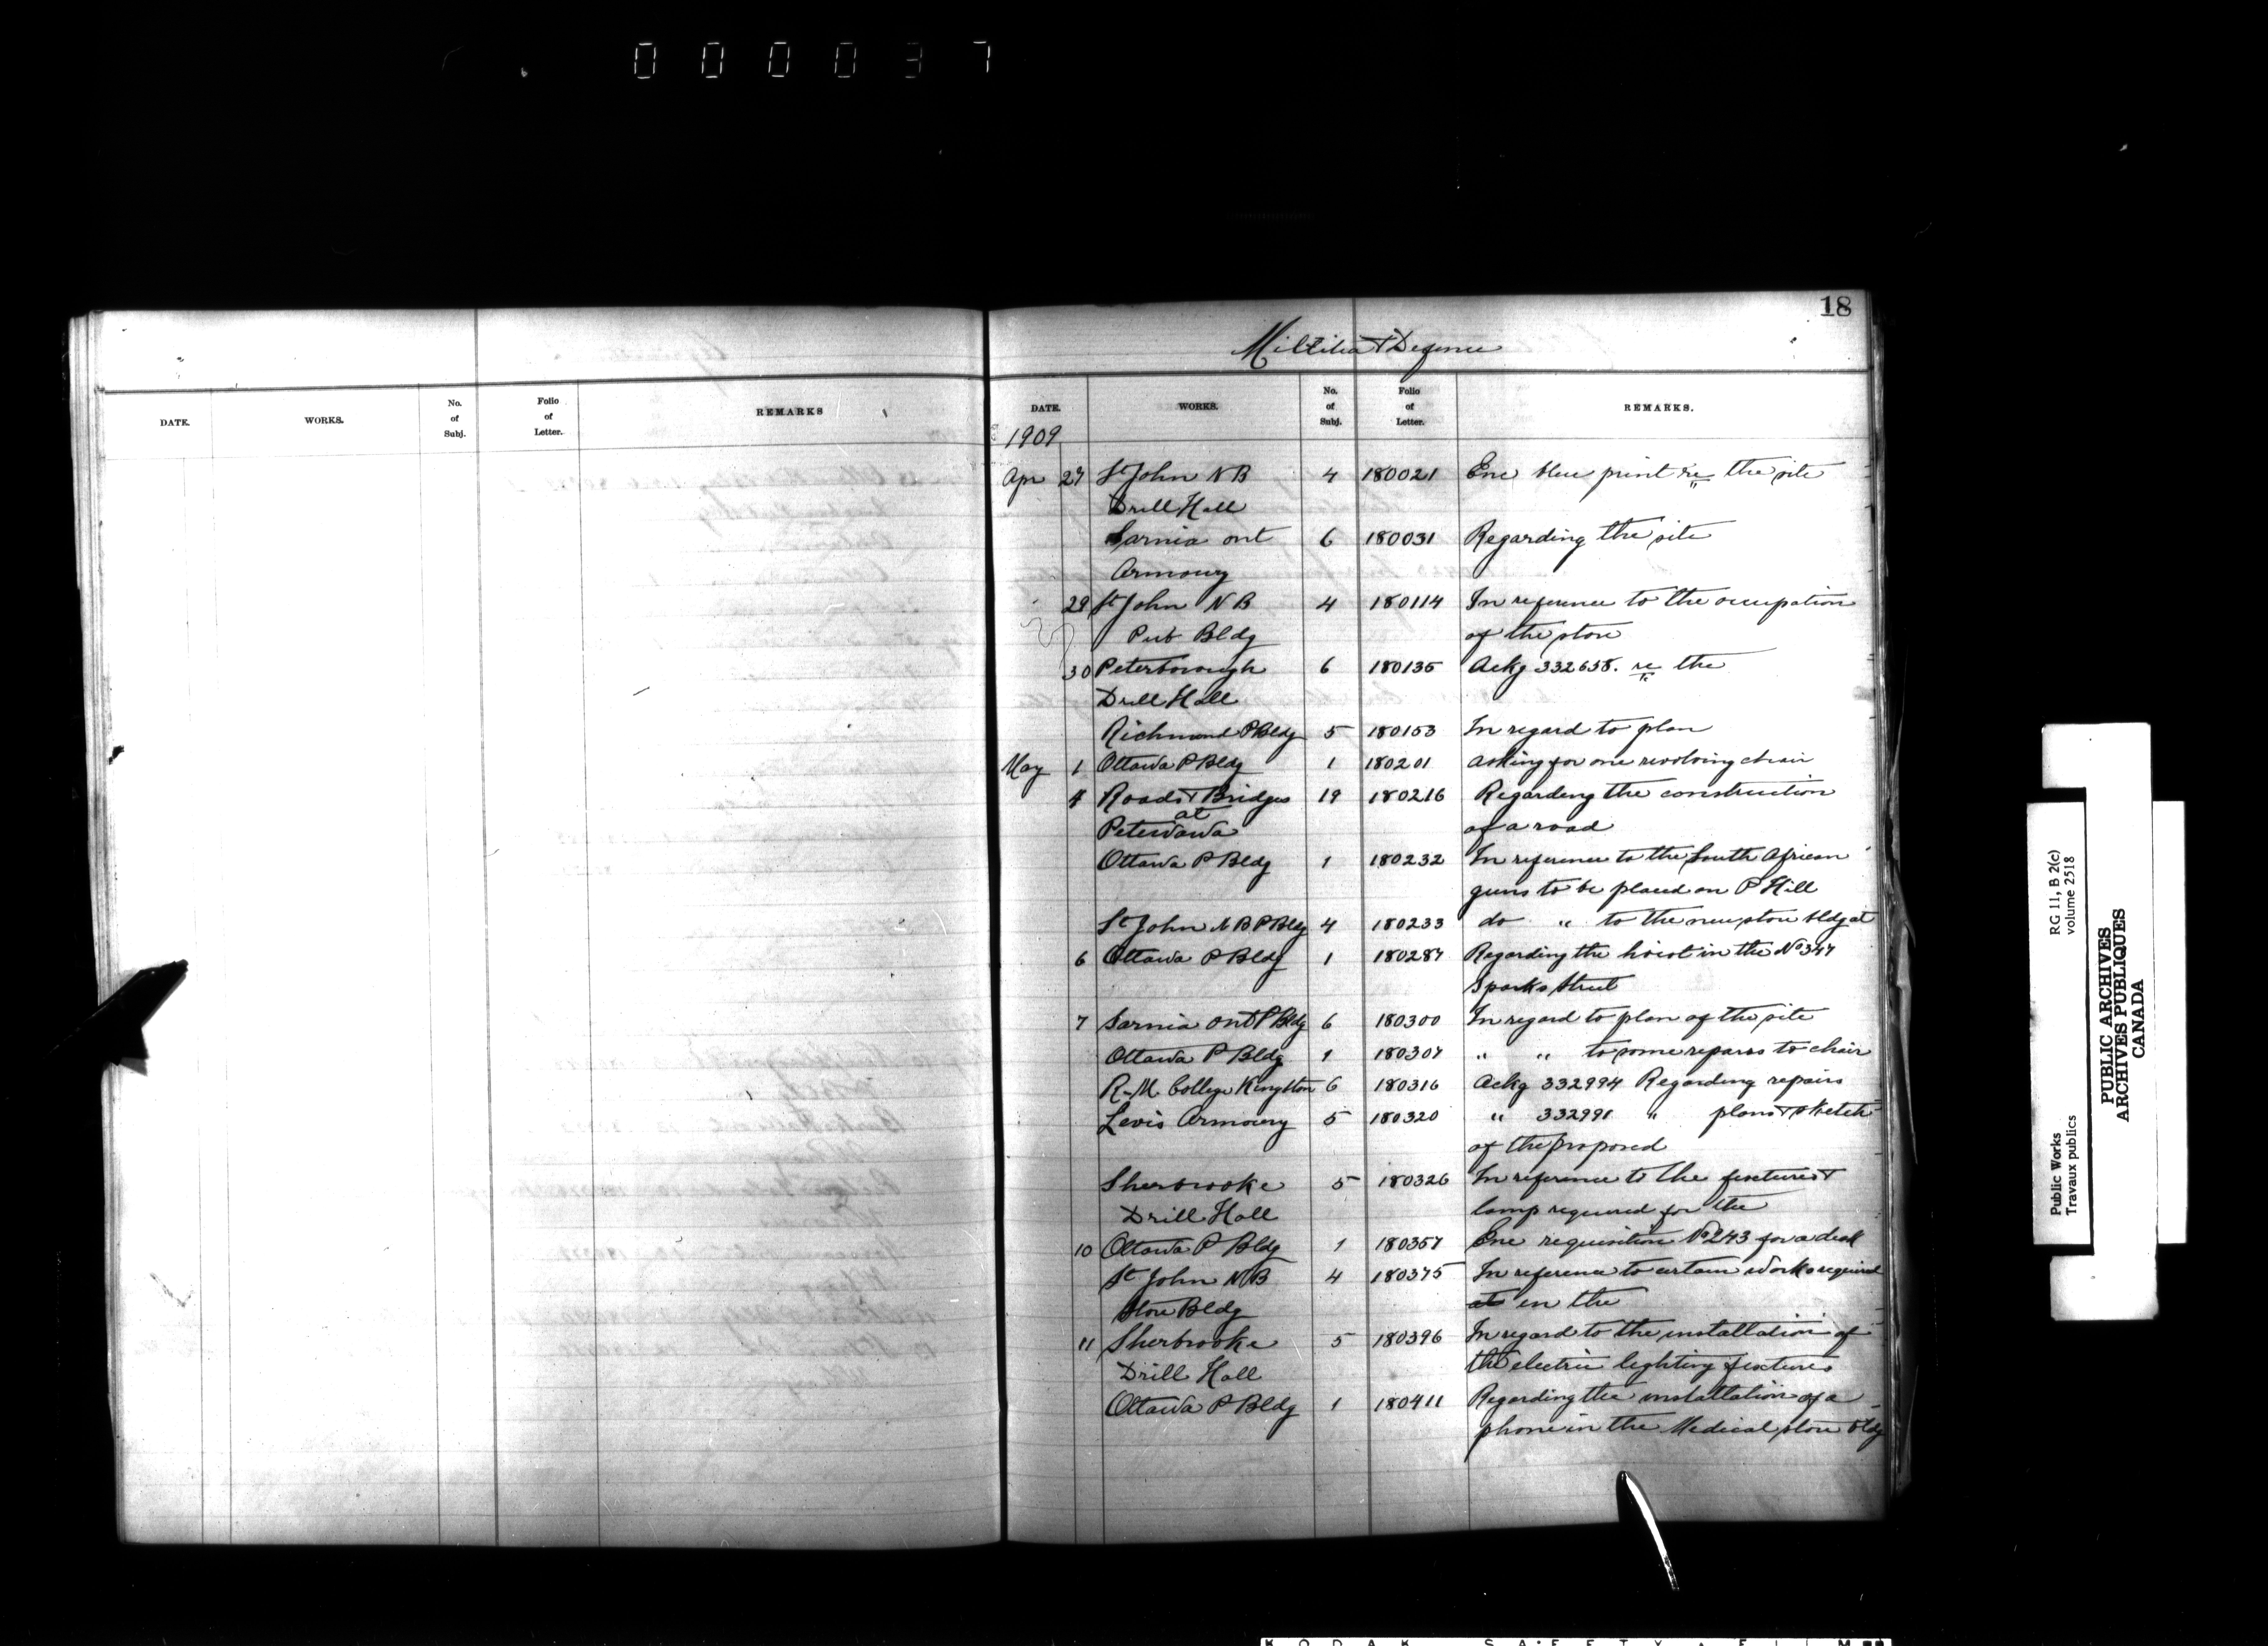 000037
18
Miltilia & Defence
DATE. WORKS. No. of Subj. Folio of Letter. REMARKS
DATE. WORKS. No. of Subj. Folio of Letter. REMARKS.
1909
Apr 27 St John N B 4 180021 Enc blue print re the site
Drill Hall
Sarnia Ont 6 180031 Regarding the site
Armoury
29 St John N B 4 180114 In reference to the occupation
Pub Bldg of the store
30 Peterborough 6 180135 Ackg 332658. re the
Drill Hall
Richmond P Bldg 5 180153 In regard to plan
May 1 Ottawa P Bldg 1 180201 Asking for one revolving chair
4 Roads & Bridges 19 180216 Regarding the construction
at
Petewawa of a road
Ottawa P Bldg 1 180232 In reference to the South African
guns to be placed on P Hill
St John N B P Bldg 4 180233 do " to the new store bldg at
6 Ottawa P Bldg 1 180287 Regarding the hoist in the No 347
Sparks Street
7 Sarnia Ont P Bldg 6 180300 In regard to plan of the site
Ottawa P Bldg 1 180307 " " to some repairs to chair
R.M. College Kingston 6 180316 Ackg 332994 Regarding repairs
Levis Armoury 5 180320 " 332991 " plans & sketch
of the proposed
Sherbrooke 5 180326 In reference to the fixtures &
Drill Hall lamp required for the
10 Ottawa P Bldg 1 180357 Enc requisition No 243 for a desk
St John N B 4 180375 In reference to certain works required
Store Bldg at in the
11 Sherbrooke 5 180396 In regard to the installation of
Drill Hall the electric lighting fixtures
Ottawa P Bldg 1 180411 Regarding the installation of a
phone in the Medical store bldg
Public Works RG 11, B 2(c)
Travaux publics volume 2518
PUBLIC ARCHIVES
ARCHIVES PUBLIQUES
CANADA
KODAK SAFETY FILM